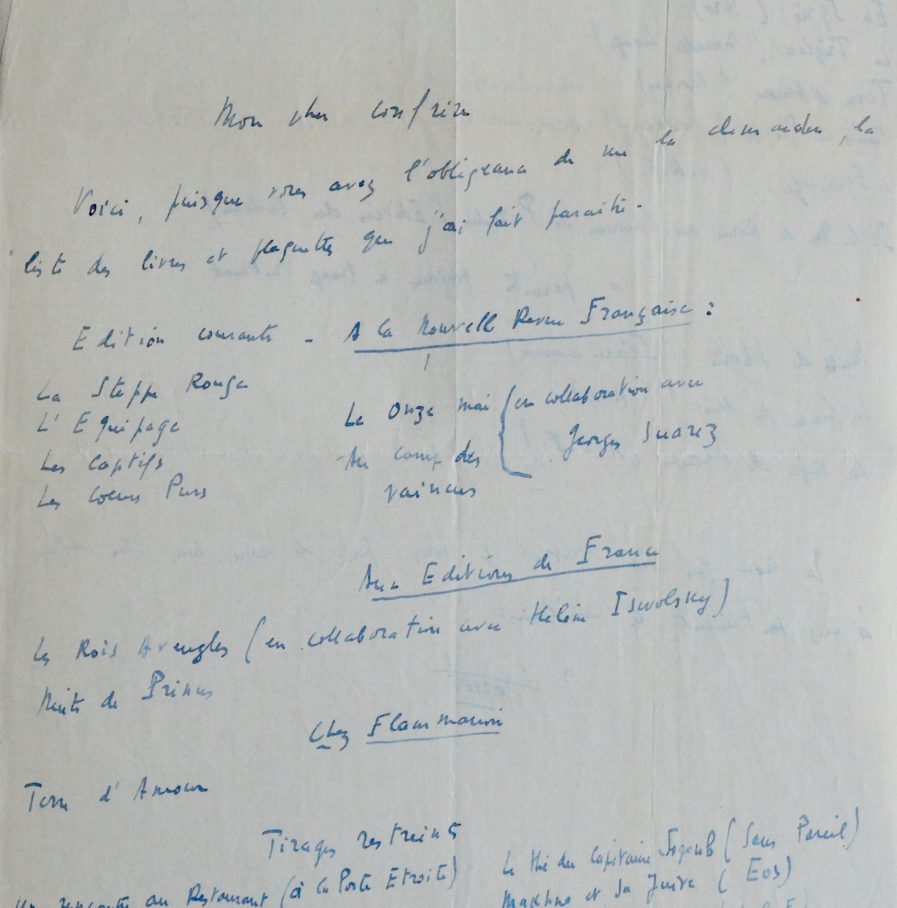 Mon cher confrère
Voici, puisque vous avez l'obligeance de me la demander, la
liste des livres et plaquettes que j'ai fait paraître.
Edition courante - A la Nouvelle Revue Française :
La Steppe Rouge
L'Equipage
Les Captifs
Les Coeurs Purs
Le Onze mai
Au camp des
vaincus
(en collaboration avec
Georges Suarez
Aux Editions de France
Les Rois Aveugles (en collaboration avec Hélène Iswolsky)
Nuits de Princes
Chez Flammarion
Terre d'Amour
Tirages restreints
Un rencontre au Restaurant (à la Porte Etroite)
Le thé du Capitaine Sogoub (Sans Pareil)
Makhno et sa Juive (Eos)